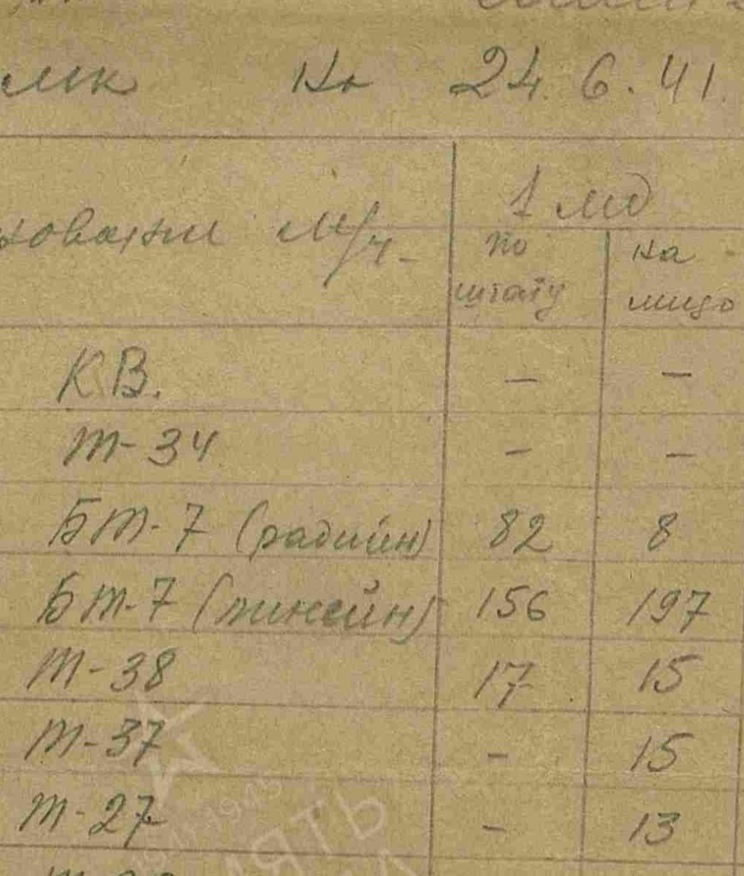 мк на 24.6.41.
1 мд
м/ч.
по на
штату лицо
КВ. — —
Т-34 — —
БТ-7 (радийн) 82 8
БТ-7 (линейн) 156 197
Т-38 17 15
Т-37 - 15
Т-27 - 13